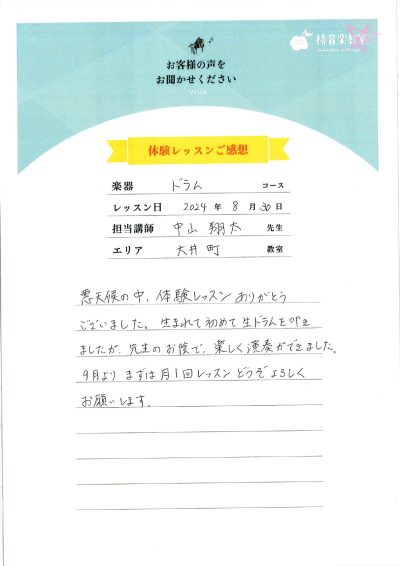 椿音楽教室
お客様の声を
お聞かせください
体験レッスンご感想
楽器 ドラム コース
レッスン日 2024 年 8 月 30 日
担当講師 中山 翔太 先生
エリア 大井町 教室
悪天候の中、体験レッスンありがとう
ございました。生まれて初めて生ドラムを叩き
ましたが、先生のお陰で、楽しく演奏ができました。
9月より まずは月1回レッスン どうぞよろしく
お願いします。